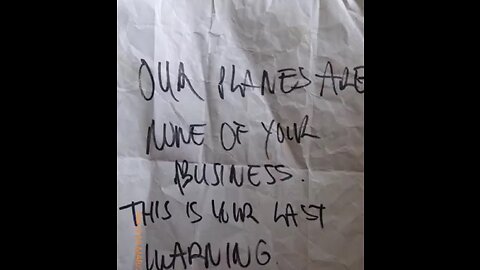 OUR PLANES ARE
NONE OF YOUR
BUSINESS.
THIS IS YOUR LAST
WARNING.